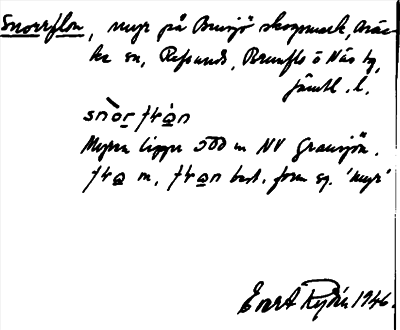 Snorrflon, myr på Bunsjö skogsmark, Aräc-
ke sn, Refsunds, Brunflo o Näs tg,
Jämtl. l.
snòr fɫo̱n
Myren ligger 500 m NV Gransjön.
fɫo̱ m, fɫo̱n best. form sg. 'myr'
Evert Rydén 1946.